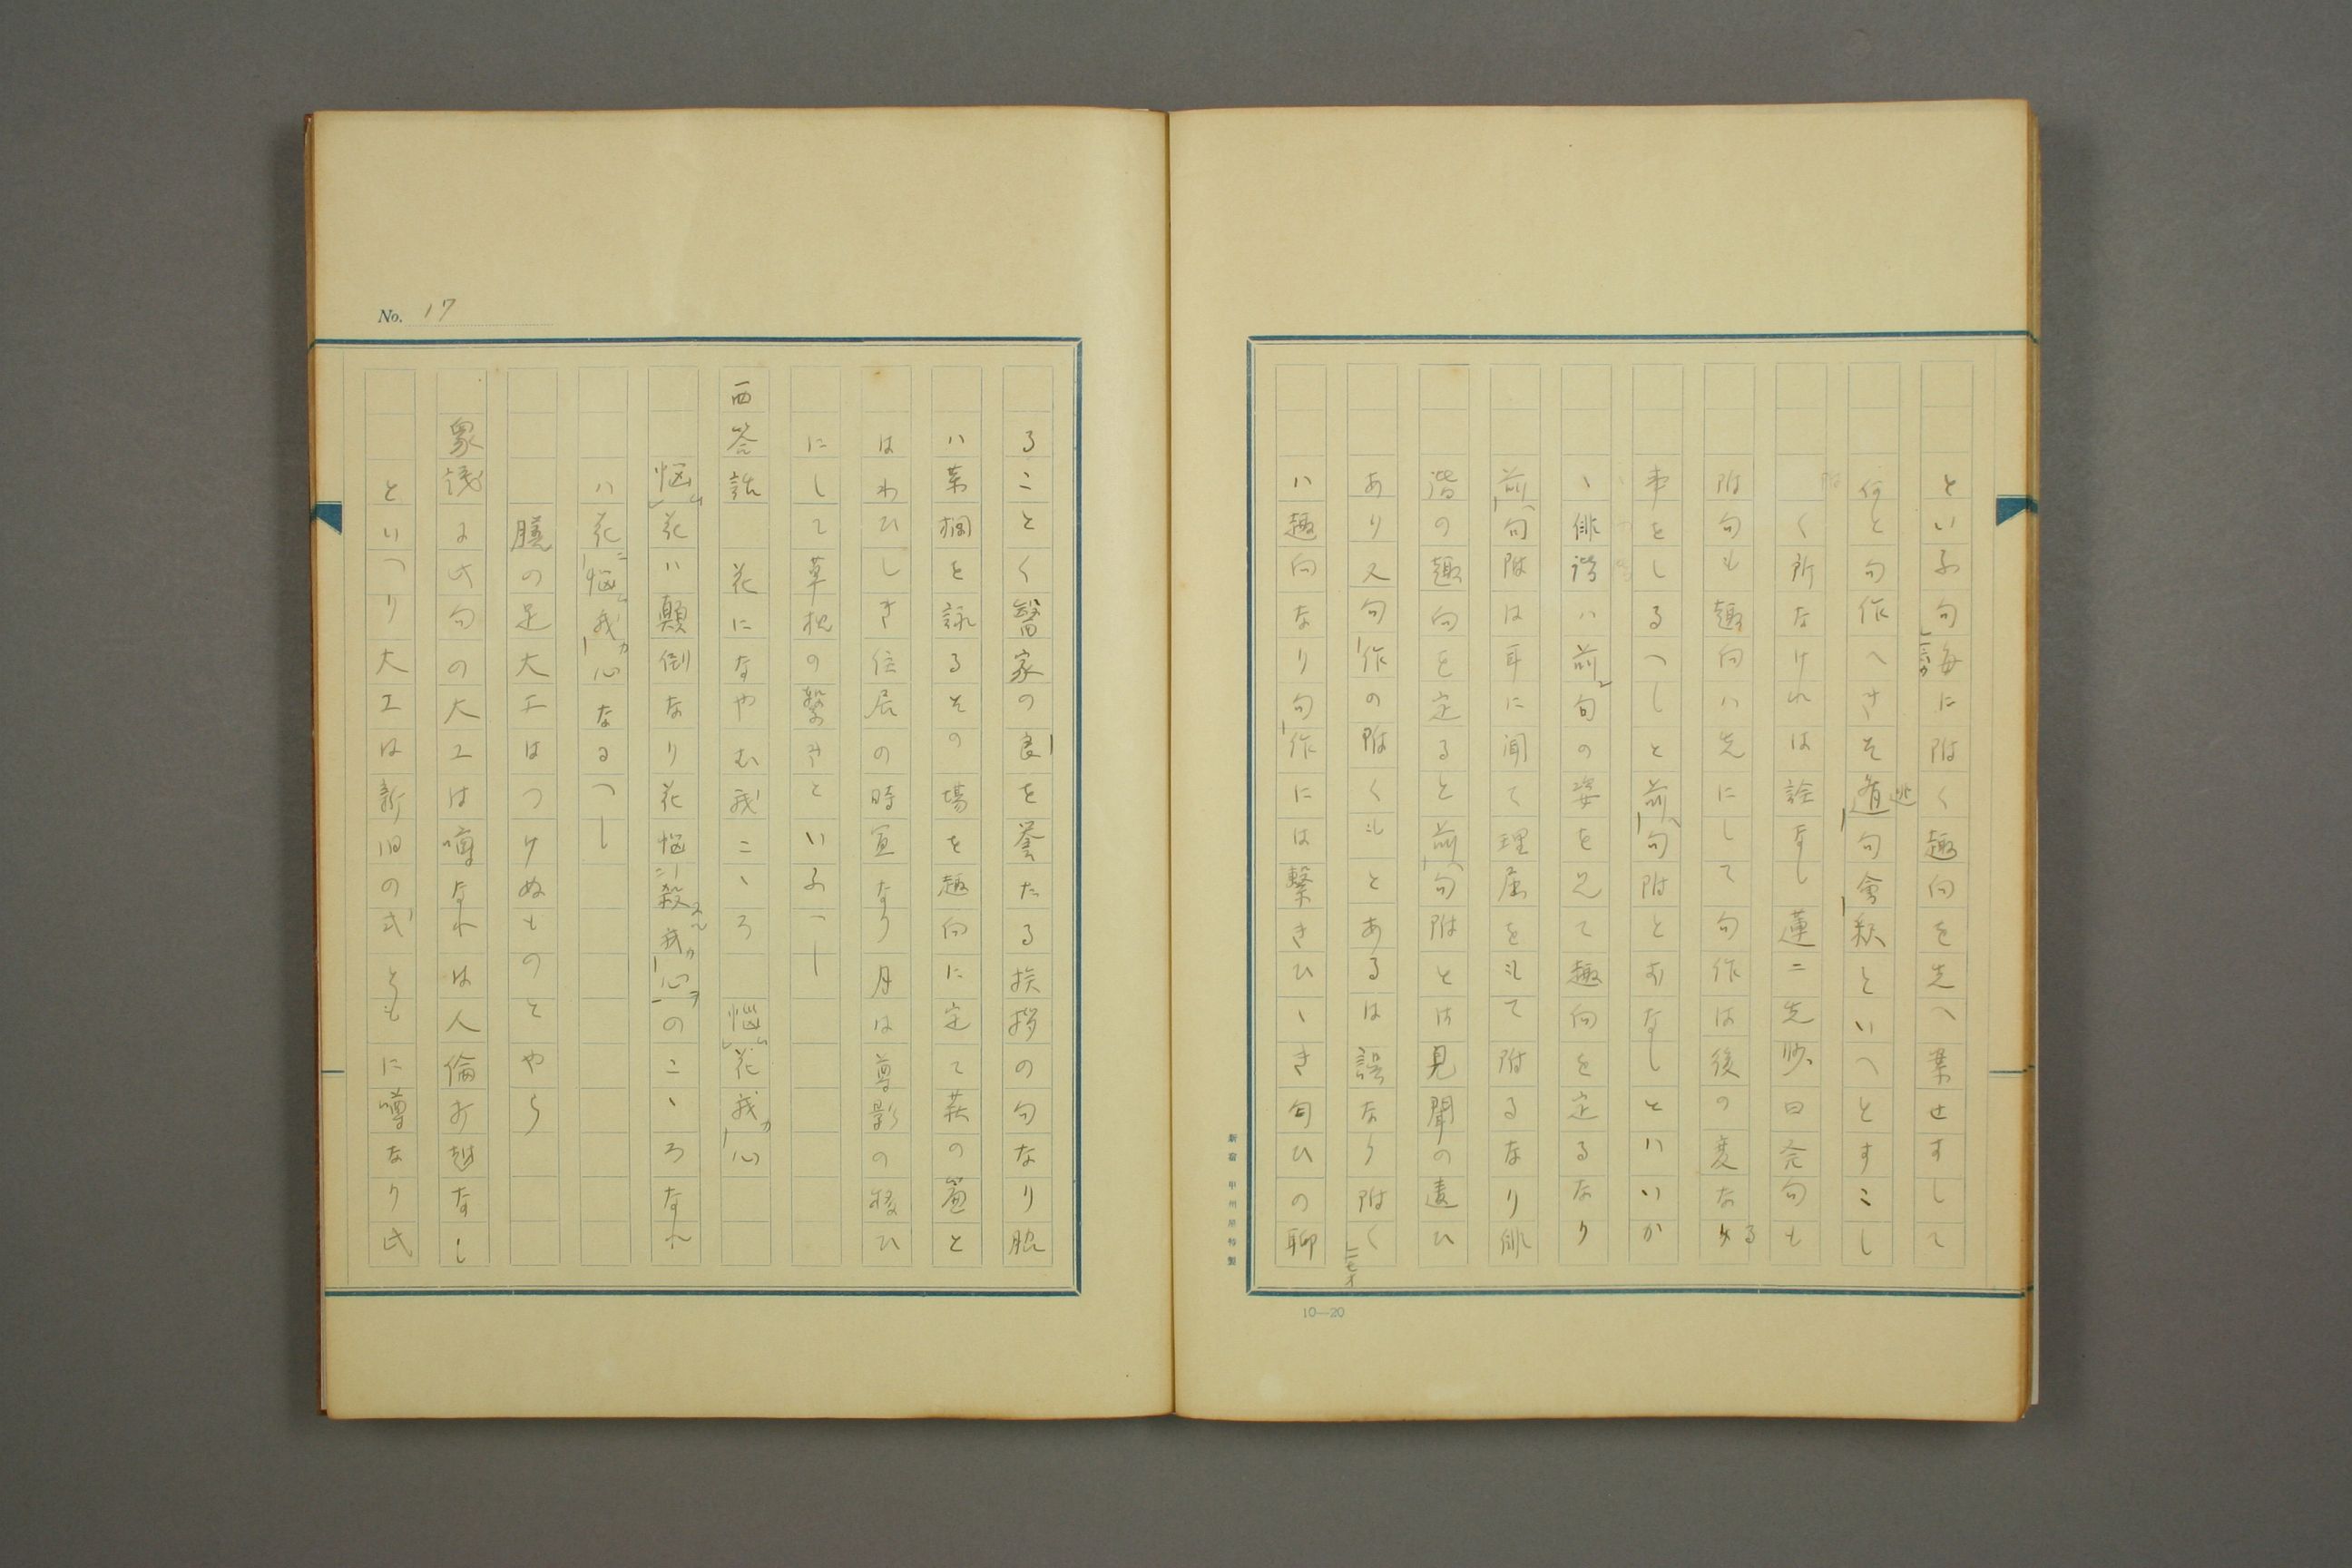 といふ句毎に附く趣向を先へ案せすして
何と句作へきそ遁句會釈といへとすこし
く所なけれは詮なし蓮二先師曰発句も
附句も趣向ハ先にして句作は後の変なる
事をしるへしと前句附とおなしとハいか
ヽ俳諧ハ前句の姿を見て趣向を定るなり
前句附は耳に聞て理屈をもて附るなり俳
諧の趣向を定ると前句附とは見聞の違ひ
あり又句作の附くもとあるは誤なり附く
ハ趣向なり句作には繋きひヽき匂ひの聊
新宿 甲州屋特製
10—20
No. 17
ることく醫家の良を誉たる挨拶の句なり脇
ハ薬櫚を詠るその場を趣向に定て萩の菴と
はわひしき住居の時宜なり月は尊影の移ひ
にして草枕の繋きといふへし
西答説 花になやむ我こヽろ 悩花我心
悩花ハ顛倒なり花悩殺我心のこヽろなれ
ハ花悩我心なるへし
膳の足大工はつけぬものとやら
衆議に此句の大工は噂なれは人倫打越なし
といつり大工は新旧の式ともに噂なり此